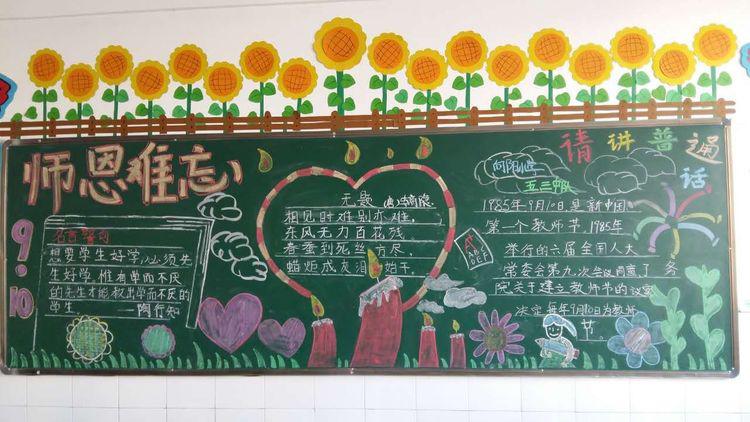 师恩难忘
9·10
名言警句
想要学生好学,必须先
生好学,惟有学而不厌
的先生才能教出学而不厌的
学生。——陶行知
无题
相见时难别亦难,
东风无力百花残
春蚕到死丝方尽,
蜡炬成灰泪始干。
A+
ABC
DEF
请讲普通话
向阳小学
五三中队
1985年9月10日是新中国
第一个教师节,1985年
举行的六届全国人大
常委会第九次会议同意了
务院关于建立教师节的议案
决定每年9月10日为教师
节。